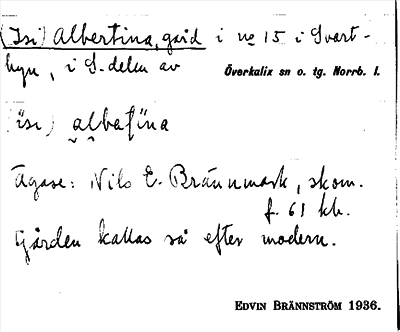 (Isi) Albertina, gård i no 15 i Svart-
byn, i S. delen av Överkalix sn o. tg. Norrb. l.
Ägare: Nils E. Brännmark, skom.
f. 61 kb.
Gården kallas så efter modern.
EDVIN BRÄNNSTRÖM 1936.